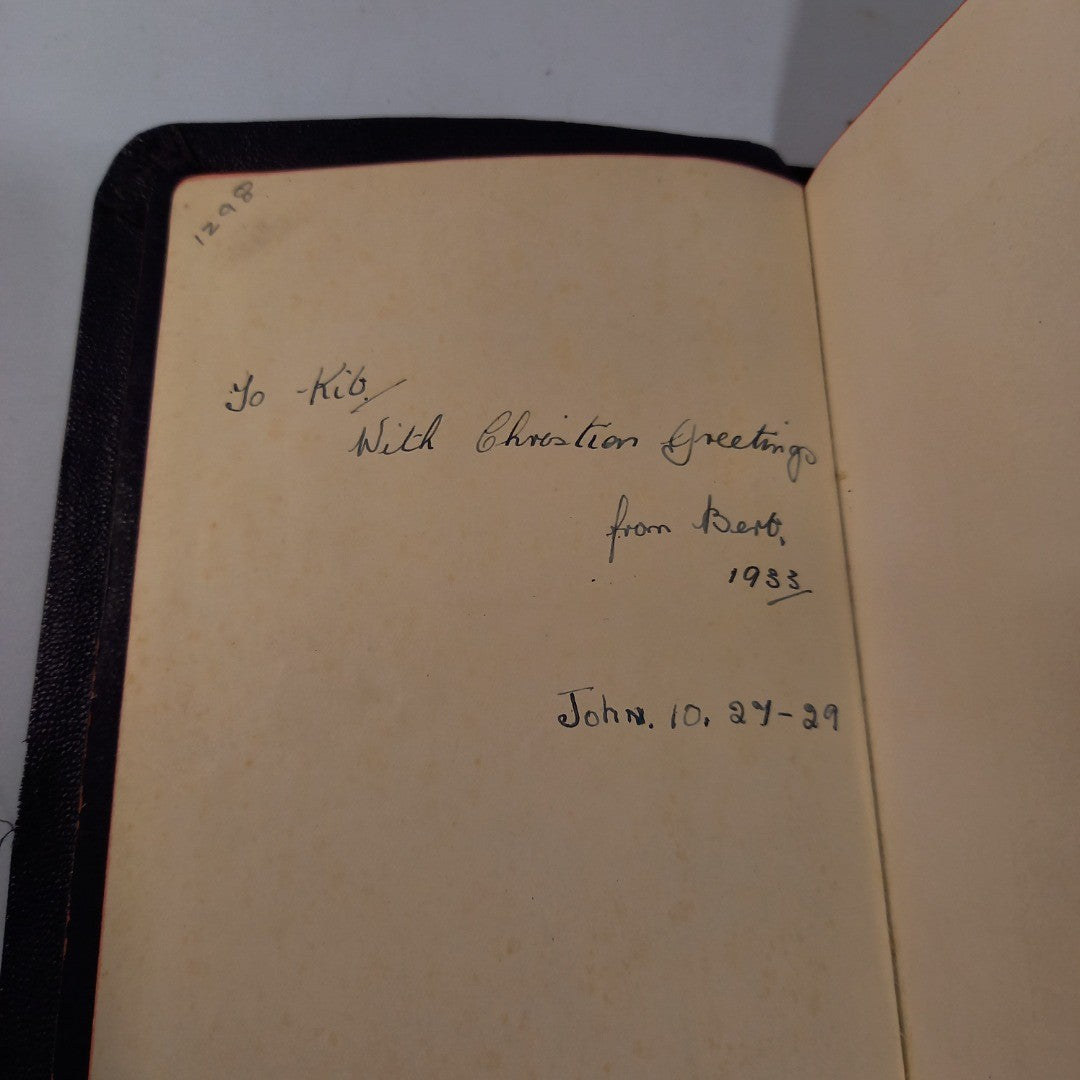 1298
To Kit.
With Christian Greetings
from Bert.
1933
John. 10. 27-29